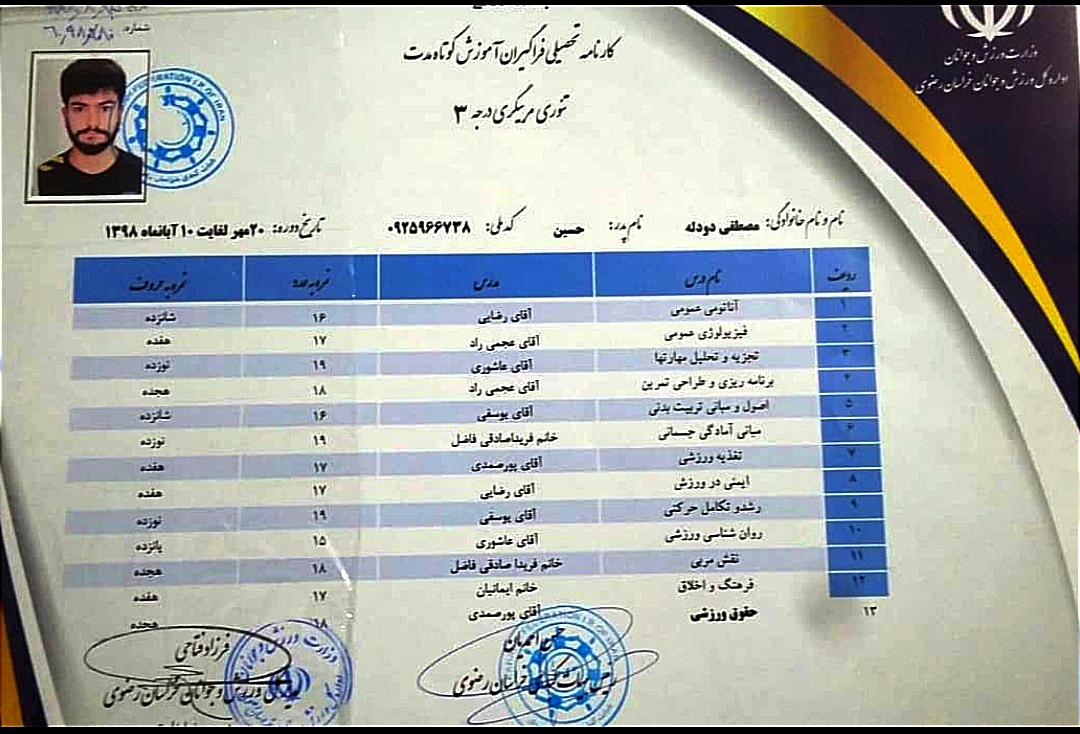 شماره:
وزارت ورزش و جوانان
اداره کل ورزش و جوانان خراسان رضوی
کارنامه تحصیلی فراگیران آموزش کوتاه مدت
تئوری مربیگری درجه ۳
نام و نام خانوادگی: مصطفی دودله نام پدر: حسین کد ملی: ۰۹۲۵۹۶۶۷۳۸ تاریخ دوره: ۲۰مهر لغایت ۱۰ آبانماه ۱۳۹۸
ردیف نام درس مدرس نمره به عدد نمره به حروف
۱ آناتومی عمومی آقای رضایی ۱۶ شانزده
۲ فیزیولوژی عمومی آقای عجمی راد ۱۷ هفده
۳ تجزیه و تحلیل مهارتها آقای عاشوری ۱۹ نوزده
۴ برنامه ریزی و طراحی تمرین آقای عجمی راد ۱۸ هجده
۵ اصول و مبانی تربیت بدنی آقای یوسفی ۱۶ شانزده
۶ مبانی آمادگی جسمانی خانم فریداصادقی فاضل ۱۹ نوزده
۷ تغذیه ورزشی آقای پورصمدی ۱۷ هفده
۸ ایمنی در ورزش آقای رضایی ۱۷ هفده
۹ رشدو تکامل حرکتی آقای یوسفی ۱۹ نوزده
۱۰ روان شناسی ورزشی آقای عاشوری ۱۵ پانزده
۱۱ نقش مربی خانم فریدا صادقی فاضل ۱۸ هجده
۱۲ فرهنگ و اخلاق خانم ایمانیان ۱۷ هفده
۱۳ حقوق ورزشی آقای پورصمدی ۱۸ هجده
فرزاد فتاحی
ورزش و جوانان خراسان رضوی
رئیس هیات خراسان رضوی